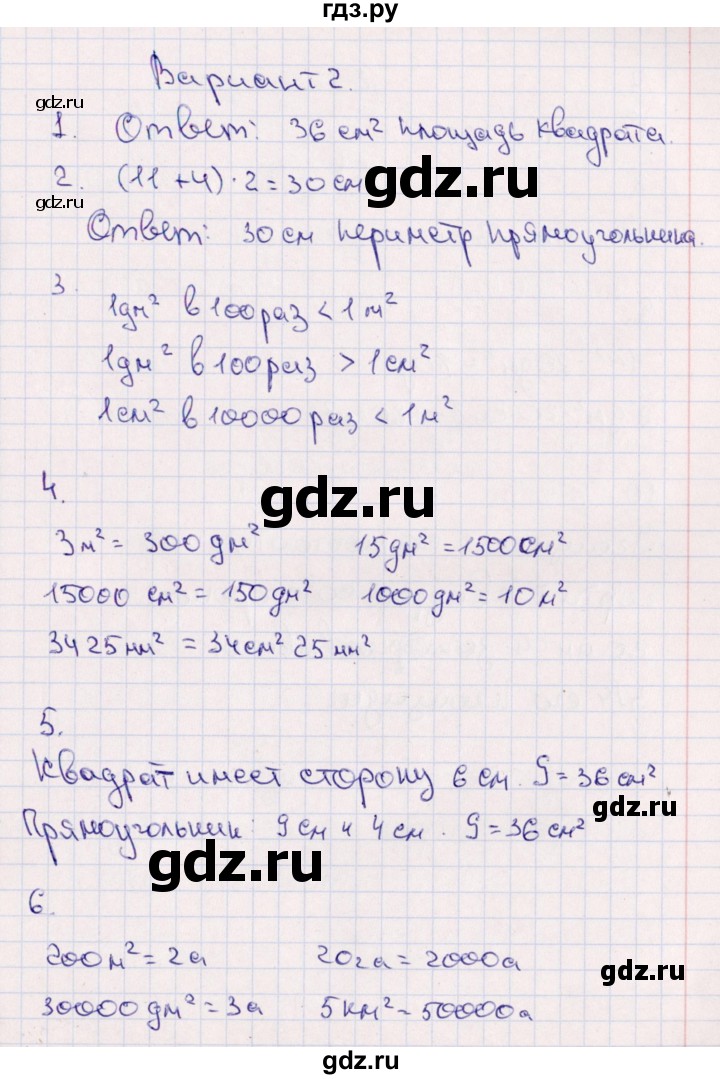 гдз.ру
Вариант 2.
gdz.ru
1. Ответ: 36 см² площадь квадрата.
2. (11+4)·2=30см
gdz.ru
gdz.ru
Ответ: 30 см периметр прямоугольника.
3.
1дм² в 100 раз < 1 м²
1дм² в 100 раз > 1 см²
1см² в 10000 раз < 1м²
4.
gdz.ru
3м² = 300 дм² 15дм² = 1500см²
15000 см² = 150дм² 1000дм² = 10м²
3425мм² = 34см² 25мм²
5.
Квадрат имеет сторону 6 см. S = 36 см²
gdz.ru
Прямоугольник: 9 см и 4 см. S = 36 см²
gdz.ru
6.
200м² = 2а 20га = 2000а
gdz.ru
30000дм² = 3а 5км² = 50000а
gdz.ru